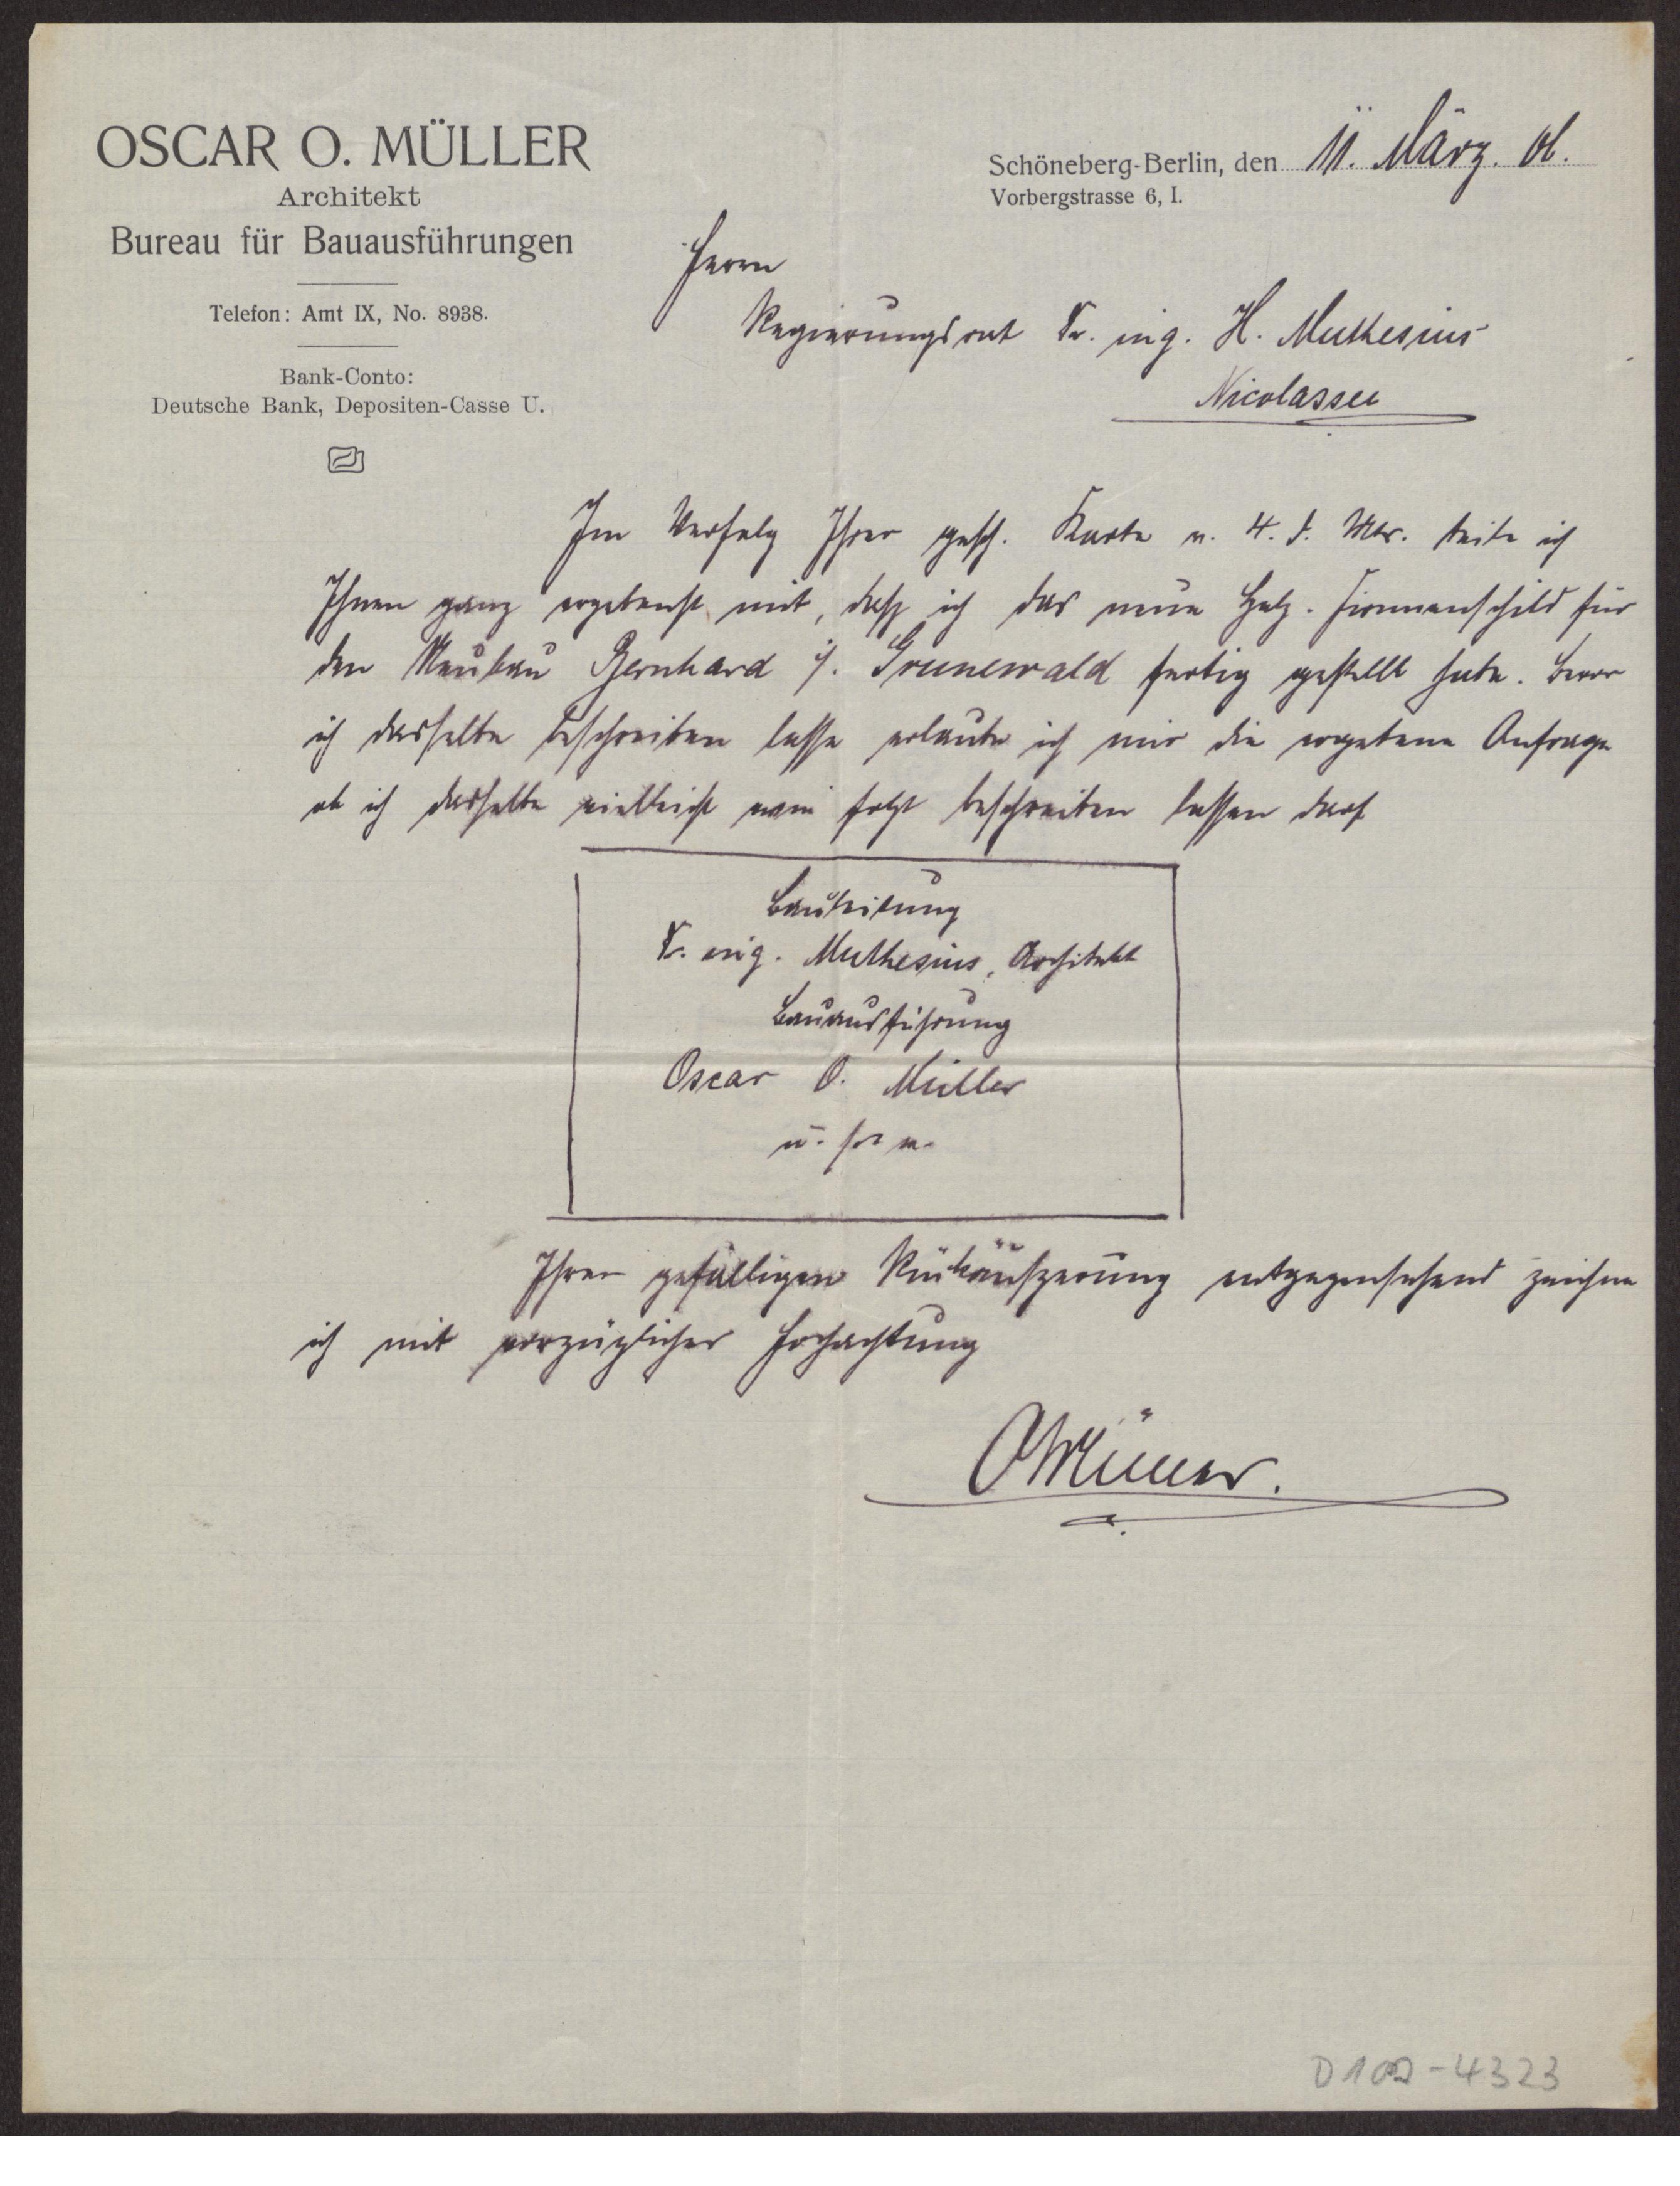 OSCAR O. MÜLLER
Architekt
Bureau für Bauausführungen
Telefon: Amt IX, No. 8938.
Bank-Conto:
Deutsche Bank, Depositen-Casse U.
Schöneberg-Berlin, den 11. März. 06.
Vorbergstrasse 6, I.
Herrn
Regierungsrat Dr. ing. H. Muthesius
Nicolassee
Im Verfolg Ihrer gesch. Karte v. 4. d. Mts. teile ich
Ihnen ganz ergebenst mit, daß ich das neue Holz-Firmenschild für
den Neubau Bernhard i/. Grunewald fertig gestellt habe. Bevor
ich dasselbe beschreiben lasse erlaube ich mir die ergebene Anfrage
ob ich dasselbe vielleicht wie folgt beschreiben lassen darf
Bauleitung
Dr. ing. Muthesius, Architekt
Bauausführung
Oscar O. Müller
u. s. w.
Ihrer gefälligen Rückäußerung entgegensehend zeichne
ich mit vorzüglicher Hochachtung
OMüller.
D102-4323